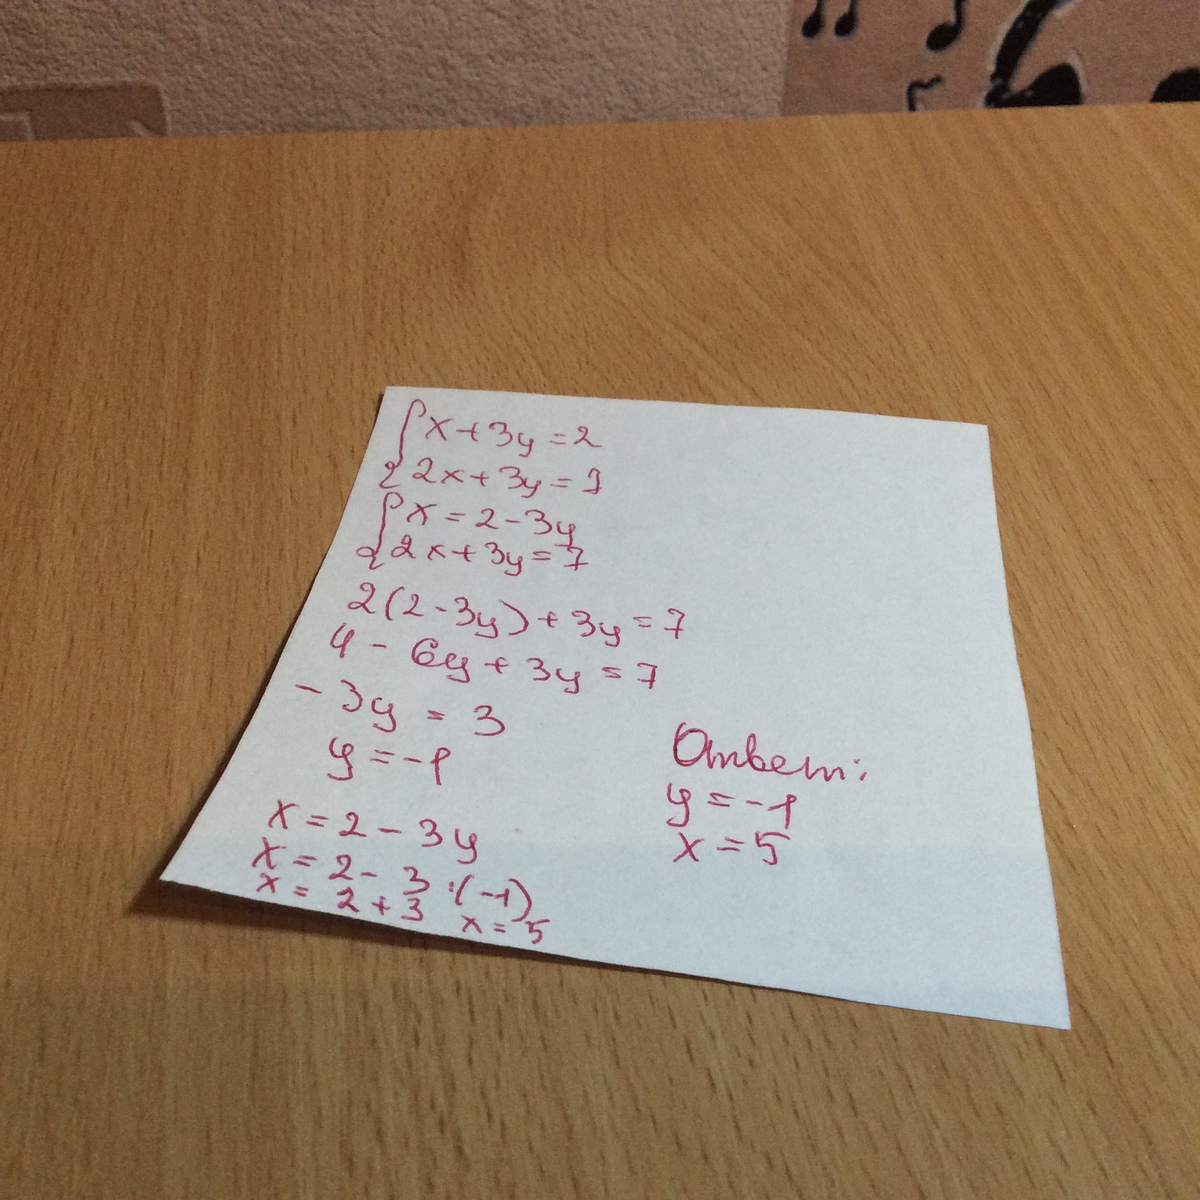 { x + 3y = 2
2x + 3y = 7
{ x = 2 - 3y
2x + 3y = 7
2(2 - 3y) + 3y = 7
4 - 6y + 3y = 7
- 3y = 3
y = -1
x = 2 - 3y
x = 2 - 3 · (-1)
x = 2 + 3 x = 5
Ответ:
y = -1
x = 5